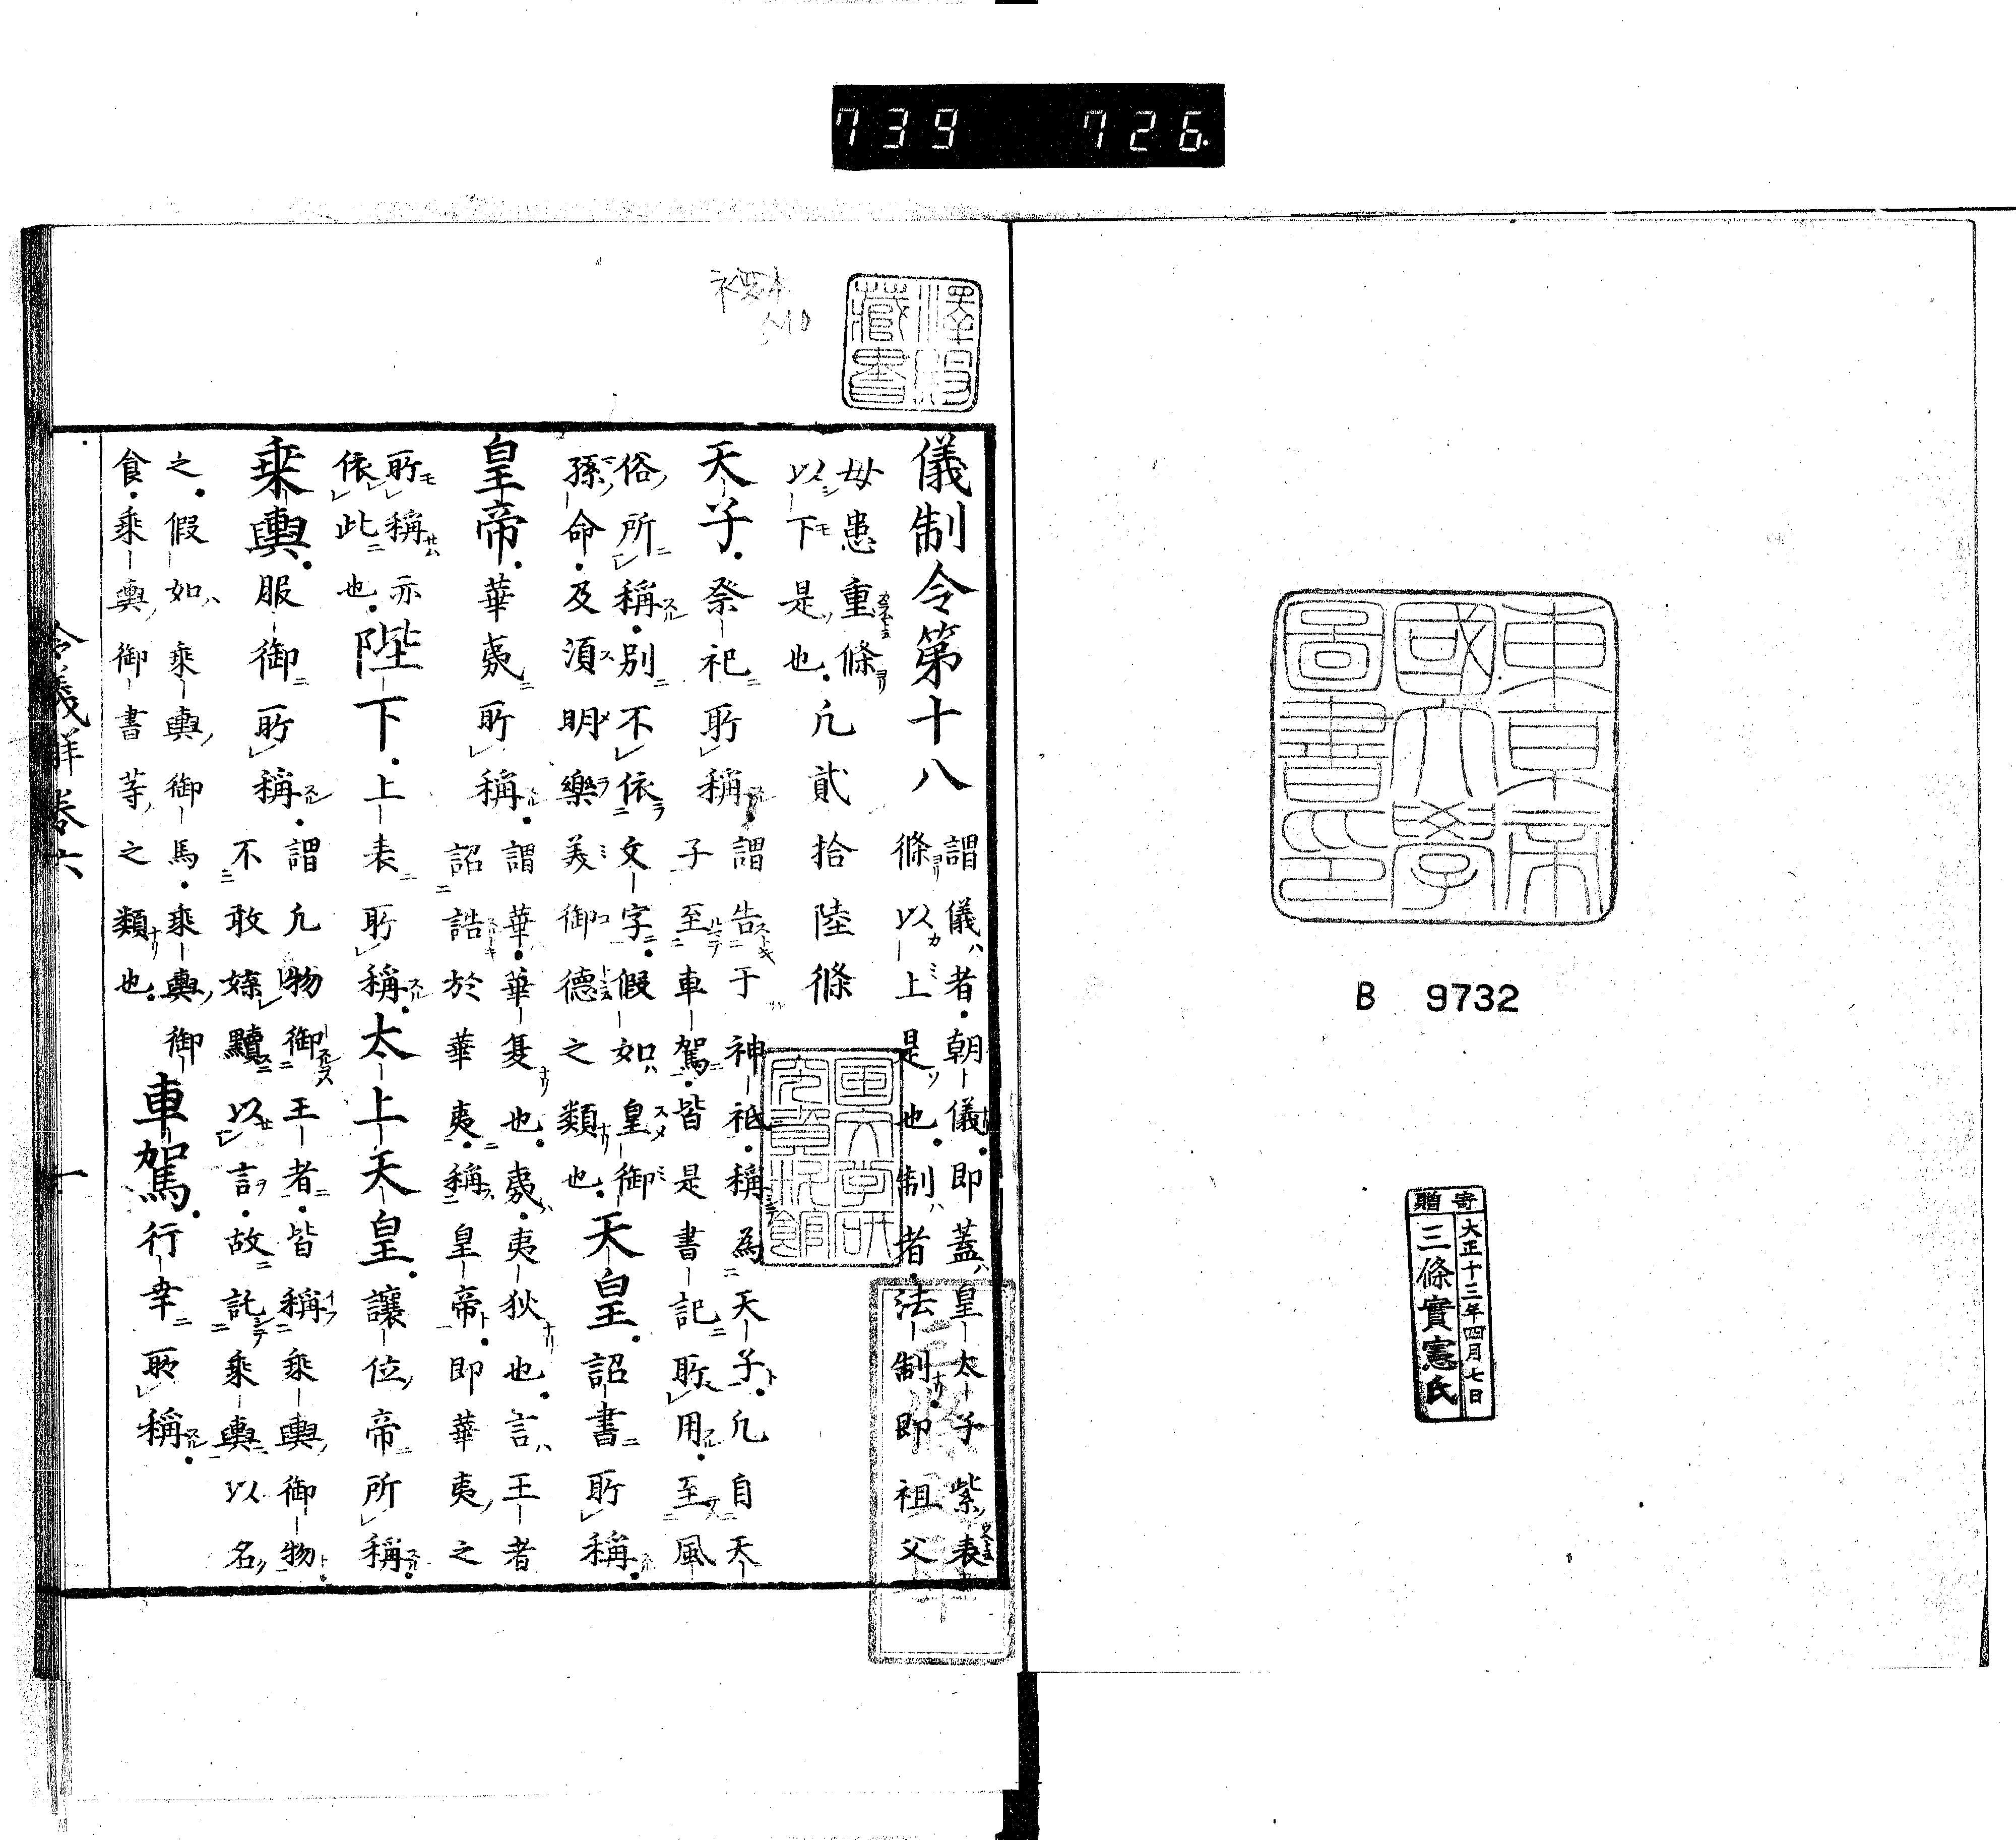 739 726.
東京帝
國大學
圖書印
B 9732
寄贈
大正十三年四月七日
三條實憲氏
藏書
儀制令第十八
謂儀者朝儀即蓋皇太子紫表
條以上是也制者法制即祖父
母患重條
以下是也
凡貳拾陸條
天子祭祀所稱
謂告于神祇稱為天子凡自天
子至車駕皆是書記所用至風
俗所稱別不依文字假如皇御
孫命及須明樂美御德之類也
天皇詔書所稱
皇帝華夷所稱
謂華華夏也夷夷狄也言王者
詔誥於華夷稱皇帝即華夷之
所稱亦
依此也
陛下上表所稱太上天皇讓位帝所稱
乘輿服御所稱
謂凡物御王者皆稱乘輿御物
不敢媟黷以言故託乘輿以名
之假如乘輿御馬乘輿御
食乘輿御書等之類也
車駕行幸所稱
令義解卷六
一